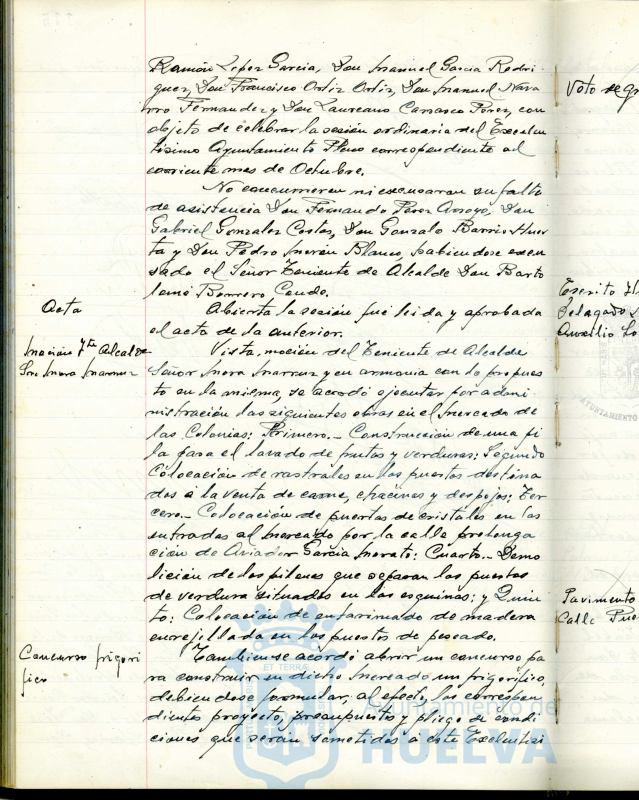 Ramón López García, Don Manuel García Rodri-
guez, Don Francisco Ortiz Ortiz, Don Manuel Nava
rro Fernandez y Don Laureano Carrasco Pérez, con
objeto de celebrar la sesión ordinaria del Excelen
tísimo Ayuntamiento Pleno correspondiente al
corriente mes de Octubre.
No concurrieron ni excusaron su falta
de asistencia Don Fernando Pérez Arroyo, Don
Gabriel Gonzalez Cortes, Don Gonzalo Barrio Huer
ta y Don Pedro Morón Blanco, habiendose excu
sado el Señor Teniente de Alcalde Don Barto
lomé Borrero Conde.
Acta
Abierta la sesión fué leida y aprobada
el acta de la anterior.
Moción Tte Alcalde
Sr. Mora
Vista moción del Teniente de Alcalde
Señor Mora y en armonia con lo propues
to en la misma, se acordó ejecutar por admi-
nistración las siguientes obras en el Mercado de
las Colonias: Primero.- Construcción de una pi
la para el lavado de frutas y verduras: Segundo
Colocación de rastrales en los puestos destina
dos a la venta de carne, chacinas y despojos: Ter
cero.- Colocación de puertas de cristales en las
entradas al Mercado por la calle prolonga
ción de Aviador García Morato: Cuarto.- Demo
lición de los pilares que separan los puestos
de verdura situados en las esquinas: y Quin
to: Colocación de entarimado de madera
enrejillada en los puestos de pescado.
Concurso frigori
fico
Tambien se acordó abrir un concurso pa
ra construir en dicho Mercado un frigorifico,
debiendose formular, al efecto, los correspon
dientes proyecto, presupuestos y pliego de condi
ciones que serán sometidos a este Excelentísi
Voto de gr
Escrito
Delegado
Auxilio
AYUNTAMIENTO
Pavimento
Calle Pue
ET TERRAE
Ayuntamiento de
HUELVA